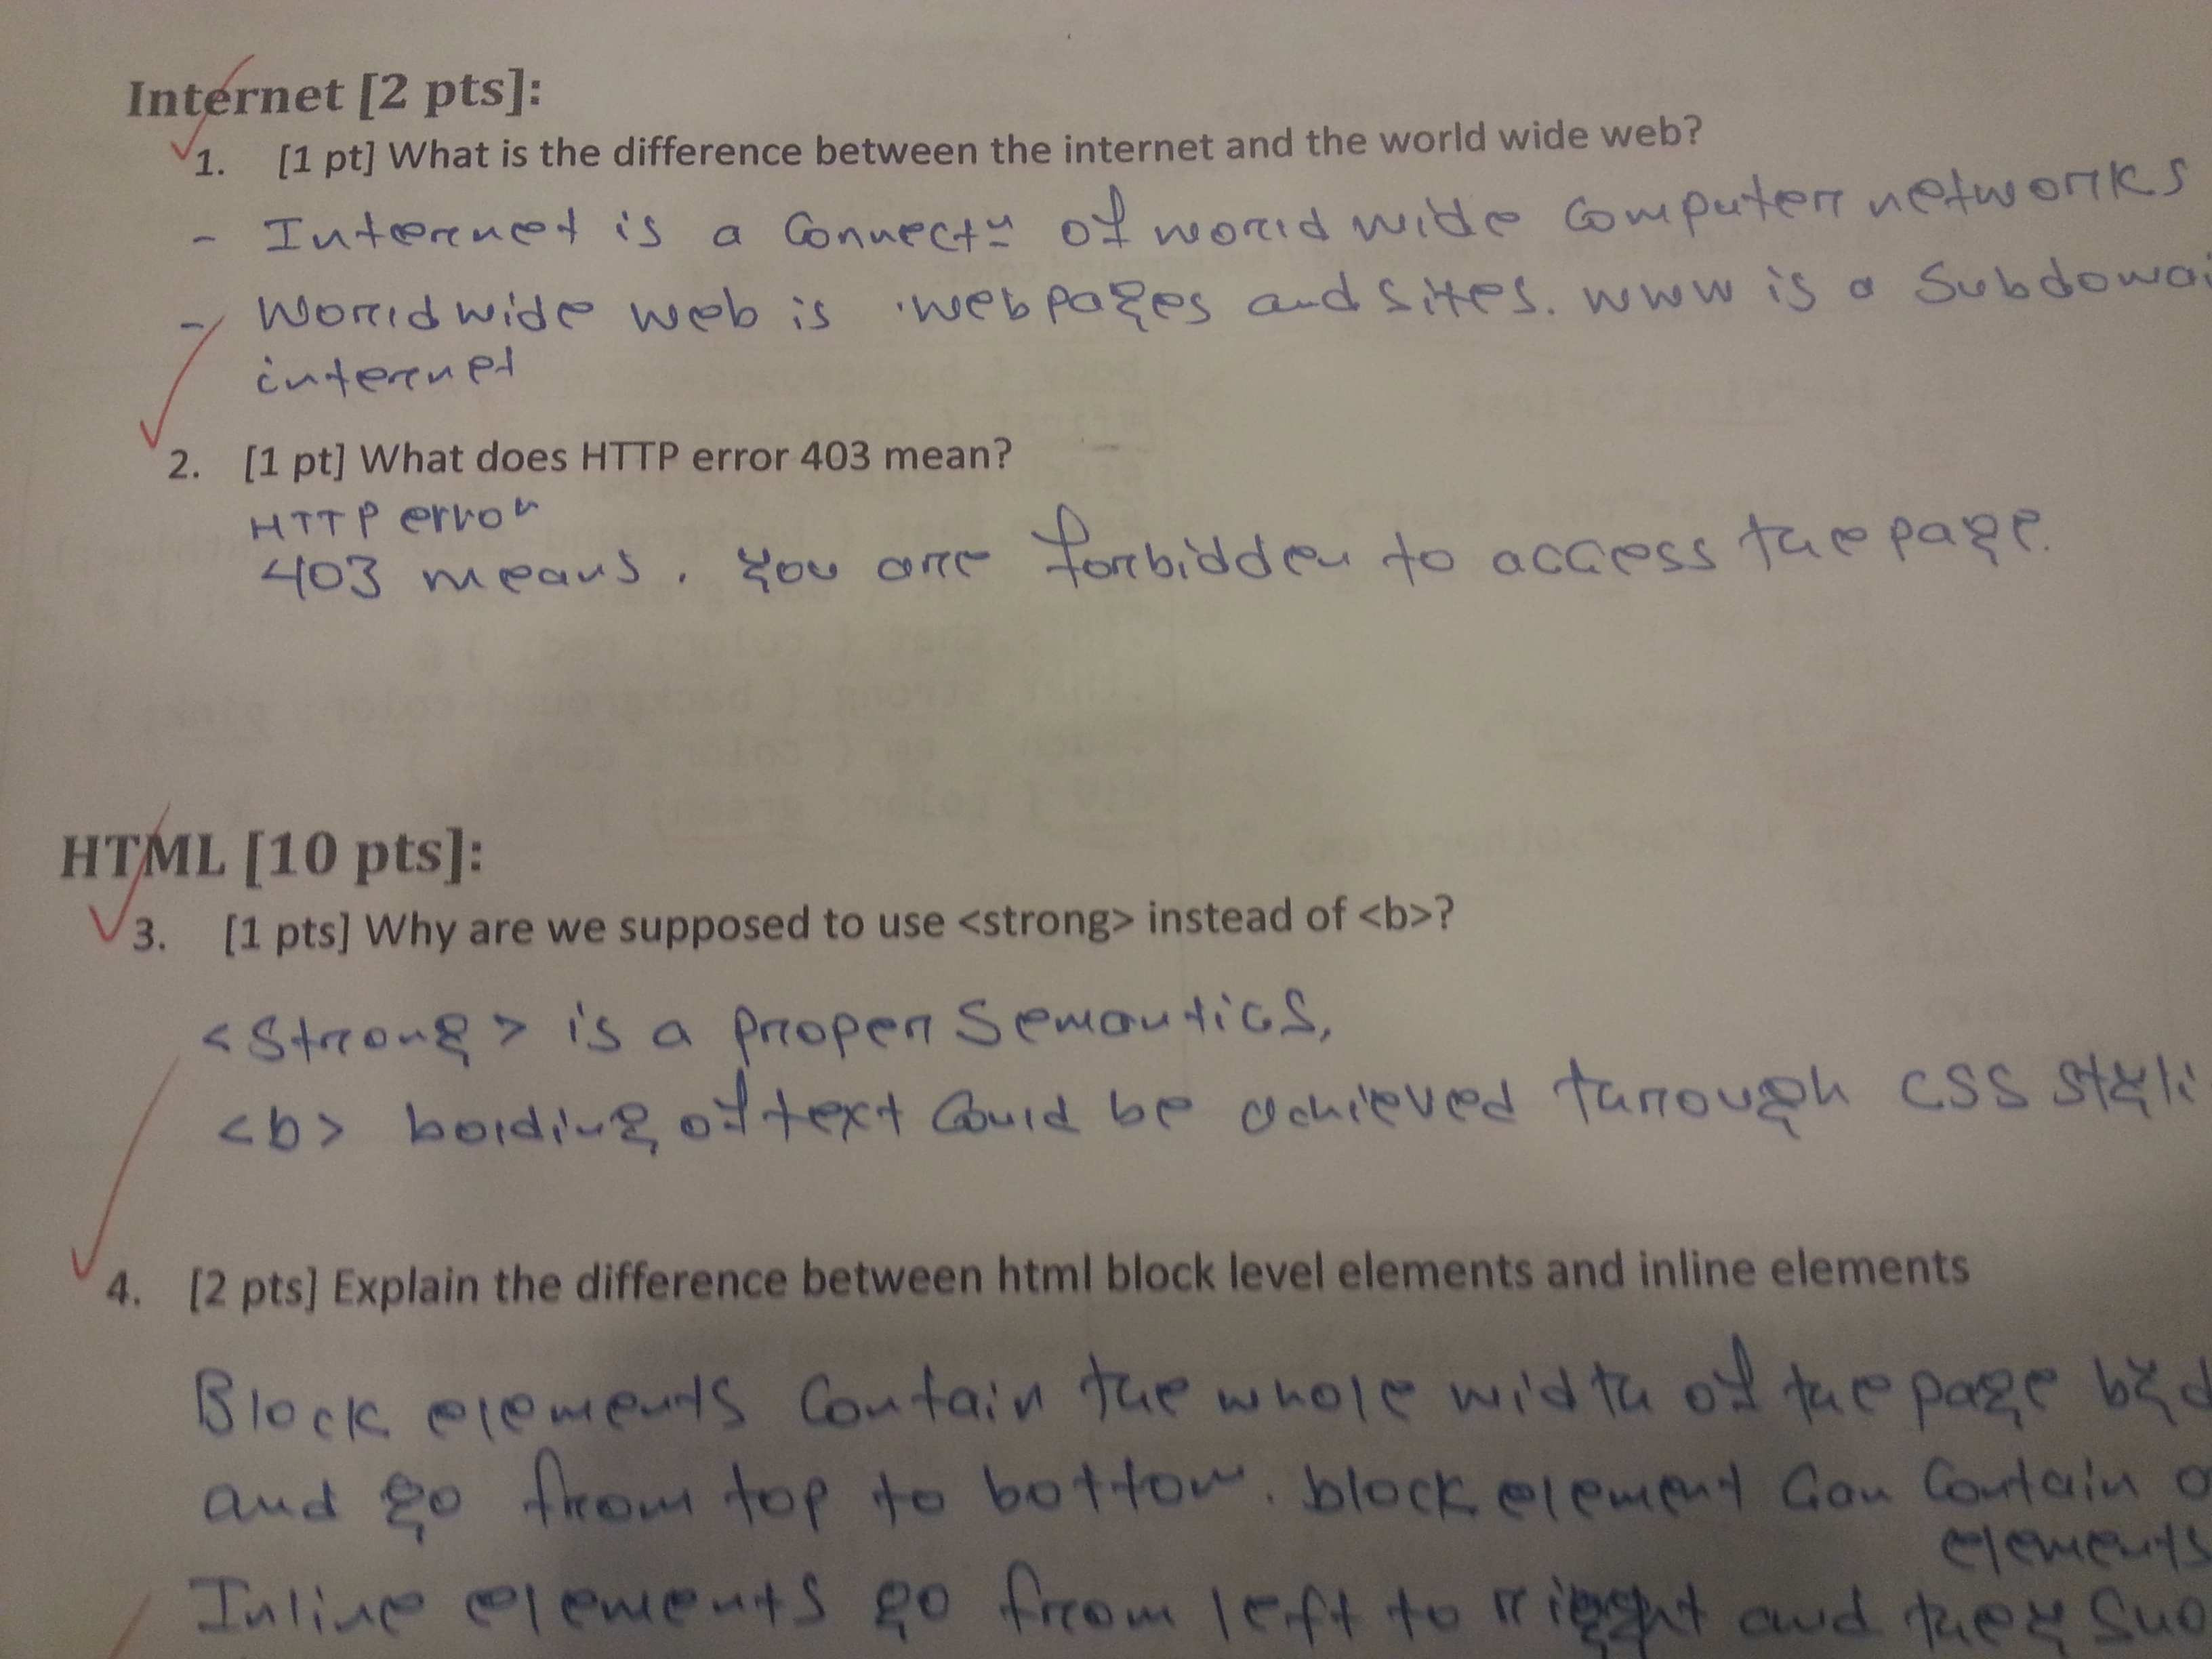 Internet [2 pts]:
1. [1 pt] What is the difference between the internet and the world wide web?
- Internet is a Connectn of world wide Computer networks
- World wide web is webpages and sites. www is a Subdomai
internet
2. [1 pt] What does HTTP error 403 mean?
HTTP error
403 means. you are forbidden to access the page.
HTML [10 pts]:
3. [1 pts] Why are we supposed to use <strong> instead of <b>?
<Strong> is a proper Semantics,
<b> bolding of text Could be achieved through CSS styli
4. [2 pts] Explain the difference between html block level elements and inline elements
Block elements Contain the whole width of the page by d
and go from top to bottom. block element Can Contain o
elements
Inline elements go from left to right and they